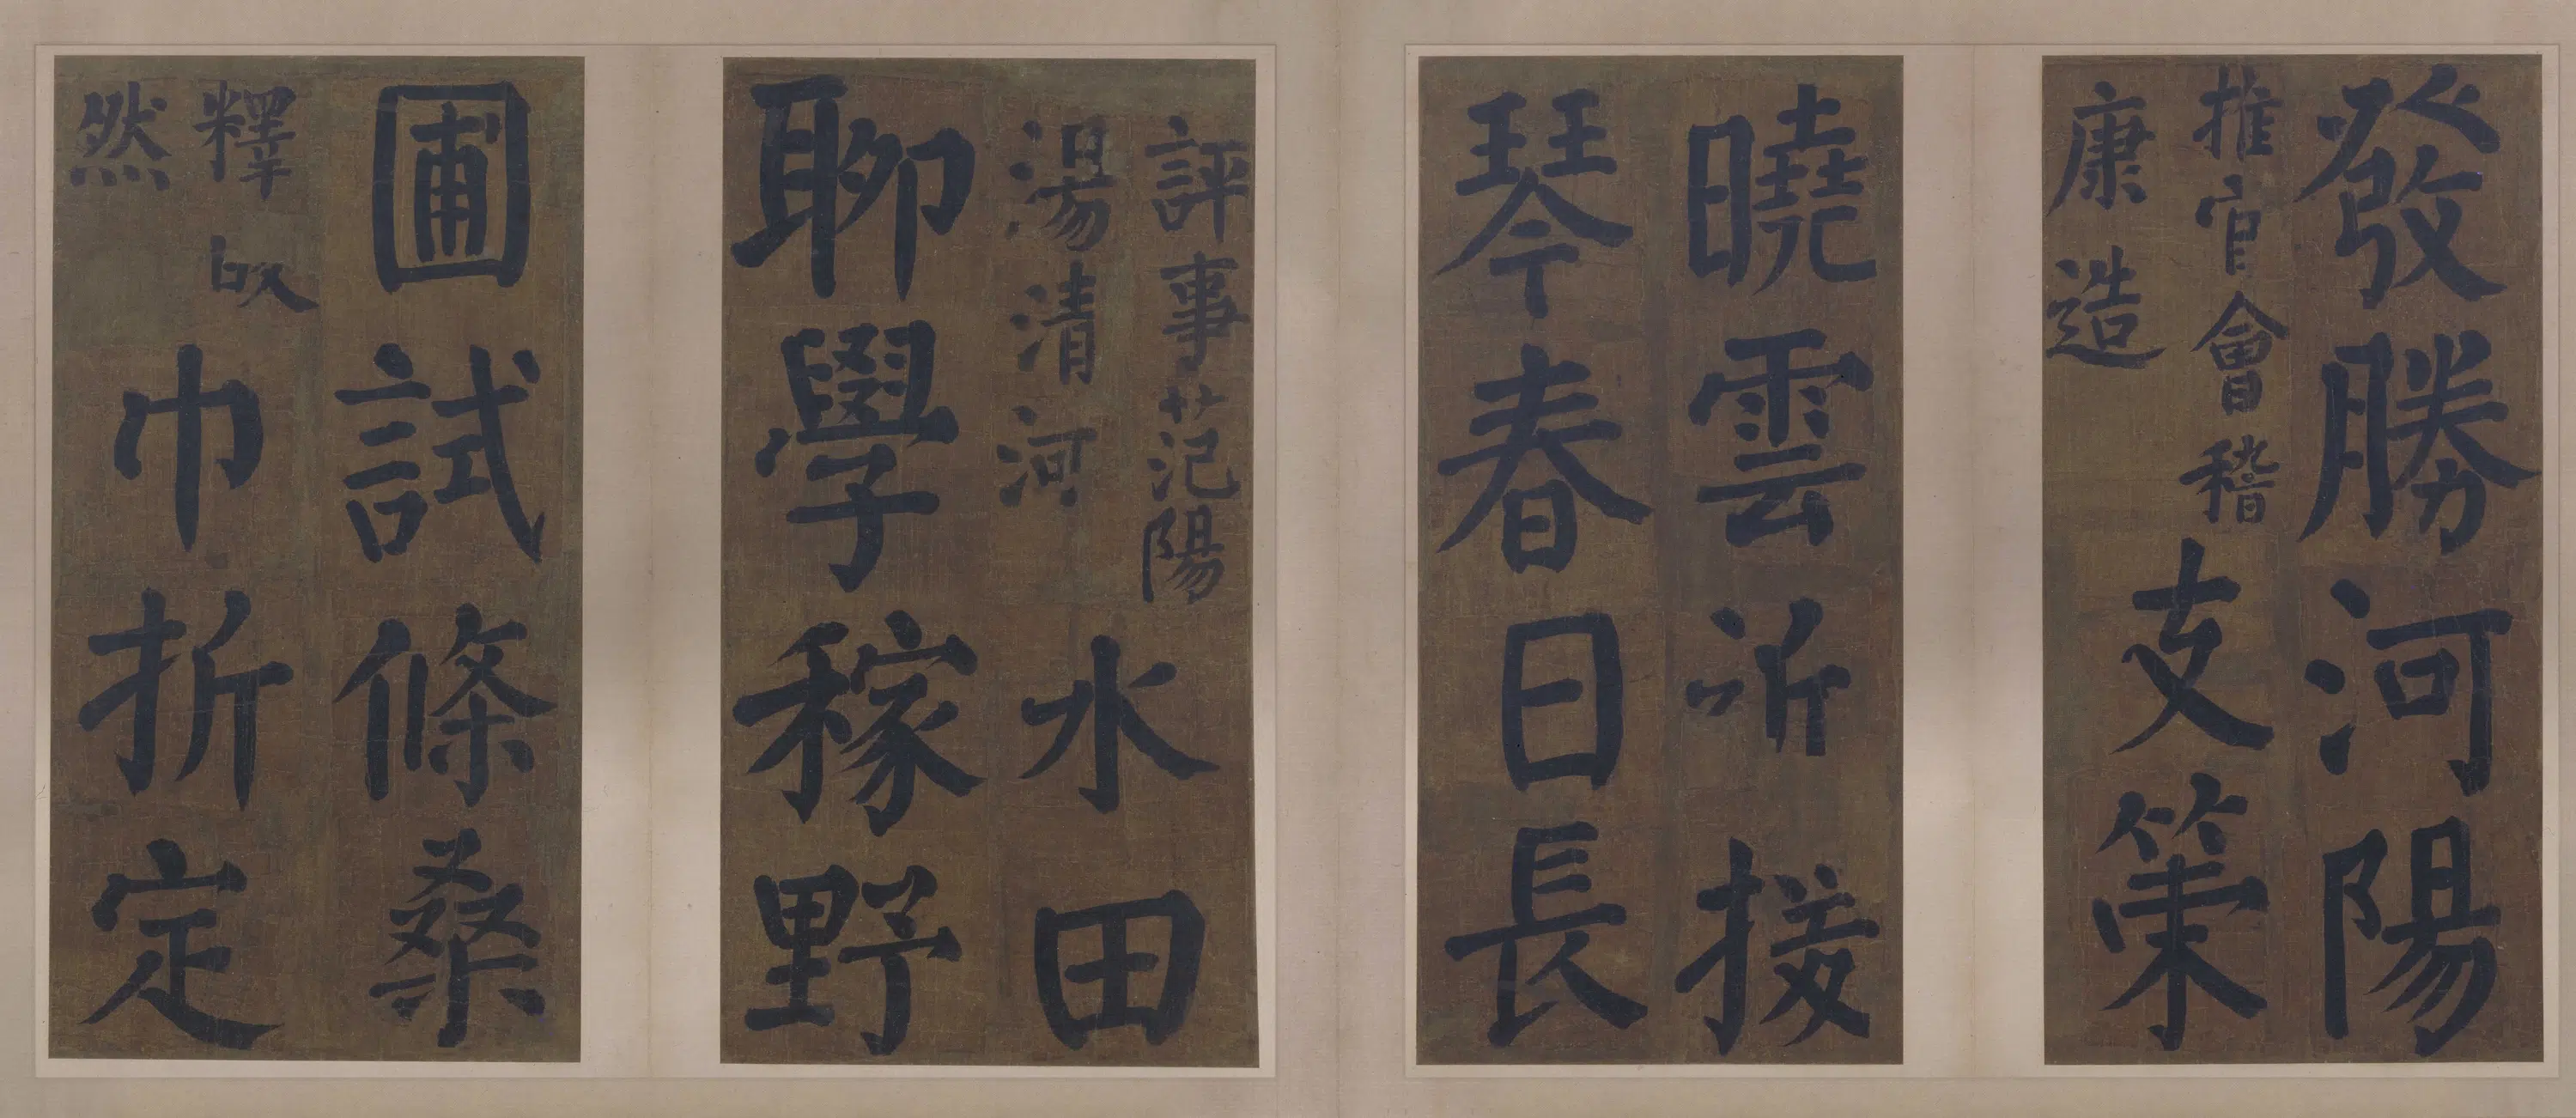 發勝河陽
推官會稽
康造
支策
曉雲近援
琴春日長
評事范陽
湯清河
水田
聊學稼野
圃試條桑
釋皎
然
巾折定